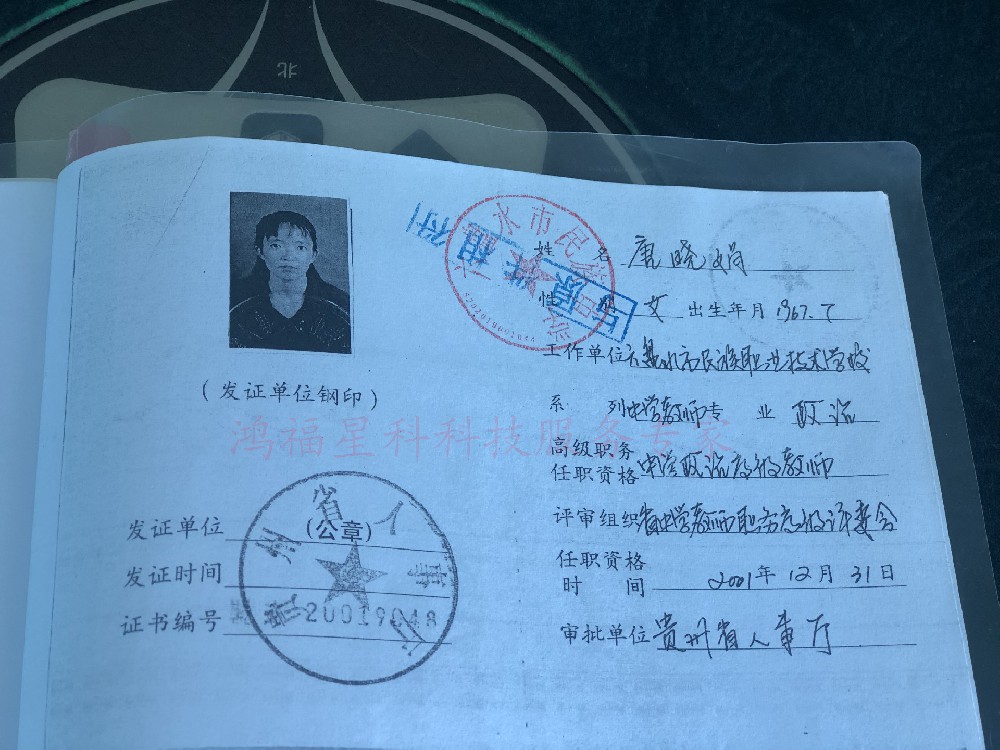 北
姓 名 唐晓娟
性 别 女 出生年月 1967.7
工作单位 六盘水市民族职业技术学校
系 列 中学教师 专 业 政治
高级职务
任职资格 中学政治高级教师
评审组织 省中学教师职务高级评委会
任职资格
时 间 2001年12月31日
审批单位 贵州省人事厅
(发证单位钢印)
发证单位 (公章)
发证时间
证书编号 20019048
贵州省人事厅
水市民族职
5202010001044
与原件相符
鸿福星科科技服务专家